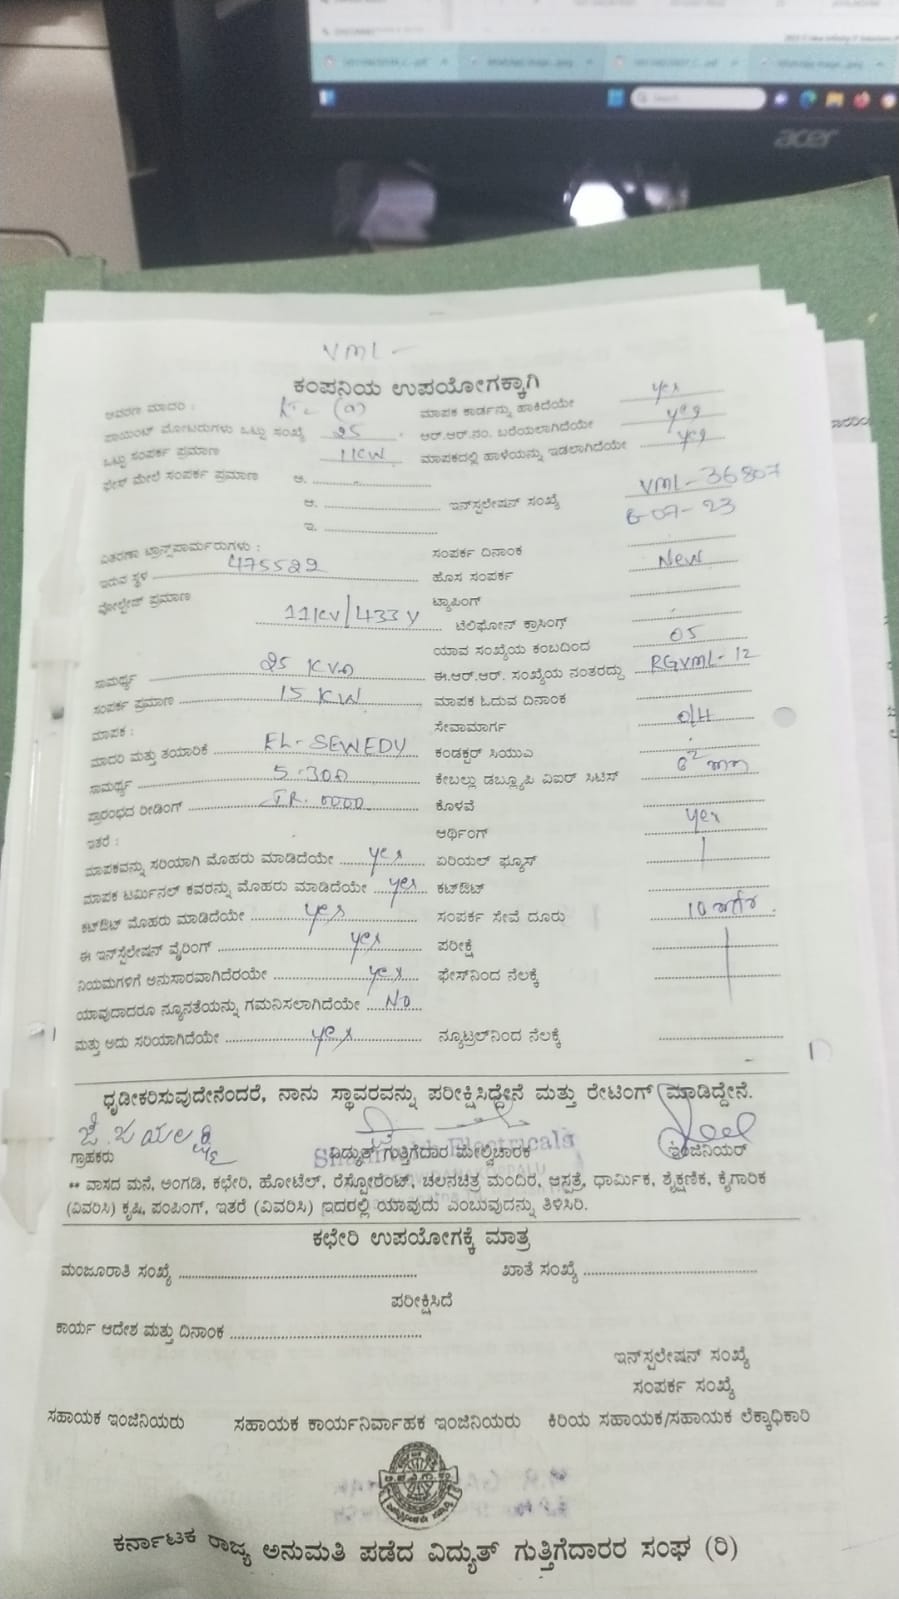 acer
VML -
ಕಂಪನಿಯ ಉಪಯೋಗಕ್ಕಾಗಿ
ಆವರಣ ಮಾದರಿ : ಮಾಪಕ ಕಾರ್ಡನ್ನು ಹಾಕಿದೆಯೇ yes
ಪಾಯಿಂಟ್ ಮೋಟರುಗಳು ಒಟ್ಟು ಸಂಖ್ಯೆ 25 ಆರ್.ಆರ್.ನಂ. ಬರೆಯಲಾಗಿದೆಯೇ yes
ಒಟ್ಟು ಸಂಪರ್ಕ ಪ್ರಮಾಣ 11KW ಮಾಪಕದಲ್ಲಿ ಹಾಳೆಯನ್ನು ಇಡಲಾಗಿದೆಯೇ yes
ಫೇಸ್ ಮೇಲೆ ಸಂಪರ್ಕ ಪ್ರಮಾಣ ಅ.
ಆ. ಇನ್‌ಸ್ಟಲೇಷನ್ ಸಂಖ್ಯೆ VML-36807
ಇ. 6-07-23
ವಿತರಣಾ ಟ್ರಾನ್ಸ್‌ಪಾರ್ಮರುಗಳು : ಸಂಪರ್ಕ ದಿನಾಂಕ
ಇರುವ ಸ್ಥಳ 475522 ಹೊಸ ಸಂಪರ್ಕ New
ವೋಲ್ಟೇಜ್ ಪ್ರಮಾಣ 11KV/433V ಟ್ಯಾಪಿಂಗ್
ಟೆಲಿಫೋನ್ ಕ್ರಾಸಿಂಗ್
ಯಾವ ಸಂಖ್ಯೆಯ ಕಂಬದಿಂದ 05
ಸಾಮರ್ಥ್ಯ 25 KVA ಈ.ಆರ್.ಆರ್. ಸಂಖ್ಯೆಯ ನಂತರದ್ದು RGVML-12
ಸಂಪರ್ಕ ಪ್ರಮಾಣ 15 KW ಮಾಪಕ ಓದುವ ದಿನಾಂಕ
ಮಾಪಕ : ಸೇವಾಮಾರ್ಗ O/H
ಮಾದರಿ ಮತ್ತು ತಯಾರಿಕೆ EL-SEWEDY ಕಂಡಕ್ಟರ್ ಸಿಯುಎ
ಸಾಮರ್ಥ್ಯ 5-30A ಕೇಬಲ್ಲು ಡಬ್ಲ್ಯೂಪಿ ವಿಐಆರ್ ಸಿಟಿಸ್ 6² mm
ಪ್ರಾರಂಭದ ರೀಡಿಂಗ್ IR. 0000 ಕೊಳವೆ
ಇತರೆ : ಆರ್ಥಿಂಗ್ yes
ಮಾಪಕವನ್ನು ಸರಿಯಾಗಿ ಮೊಹರು ಮಾಡಿದೆಯೇ yes ಏರಿಯಲ್ ಫ್ಯೂಸ್
ಮಾಪಕ ಟರ್ಮಿನಲ್ ಕವರನ್ನು ಮೊಹರು ಮಾಡಿದೆಯೇ yes ಕಟ್‌ಔಟ್
ಕಟ್‌ಔಟ್ ಮೊಹರು ಮಾಡಿದೆಯೇ yes ಸಂಪರ್ಕ ಸೇವೆ ದೂರು 10
ಈ ಇನ್‌ಸ್ಟಲೇಷನ್ ವೈರಿಂಗ್ yes ಪರೀಕ್ಷೆ
ನಿಯಮಗಳಿಗೆ ಅನುಸಾರವಾಗಿದೆರಯೇ yes ಫೇಸ್‌ನಿಂದ ನೆಲಕ್ಕೆ
ಯಾವುದಾದರೂ ನ್ಯೂನತೆಯನ್ನು ಗಮನಿಸಲಾಗಿದೆಯೇ No
ಮತ್ತು ಅದು ಸರಿಯಾಗಿದೆಯೇ yes ನ್ಯೂಟ್ರಲ್‌ನಿಂದ ನೆಲಕ್ಕೆ
ಧೃಡೀಕರಿಸುವುದೇನೆಂದರೆ, ನಾನು ಸ್ಥಾವರವನ್ನು ಪರೀಕ್ಷಿಸಿದ್ದೇನೆ ಮತ್ತು ರೇಟಿಂಗ್ ಮಾಡಿದ್ದೇನೆ.
Electricals
ಗ್ರಾಹಕರು ವಿದ್ಯುತ್ ಗುತ್ತಿಗೆದಾರ ಮೇಲ್ವಿಚಾರಕ ಇಂಜಿನಿಯರ್
** ವಾಸದ ಮನೆ, ಅಂಗಡಿ, ಕಛೇರಿ, ಹೋಟೆಲ್, ರೆಸ್ಟೋರೆಂಟ್, ಚಲನಚಿತ್ರ ಮಂದಿರ, ಆಸ್ಪತ್ರೆ, ಧಾರ್ಮಿಕ, ಶೈಕ್ಷಣಿಕ, ಕೈಗಾರಿಕ
(ವಿವರಿಸಿ) ಕೃಷಿ, ಪಂಪಿಂಗ್, ಇತರೆ (ವಿವರಿಸಿ) ಇದರಲ್ಲಿ ಯಾವುದು ಎಂಬುವುದನ್ನು ತಿಳಿಸಿರಿ.
ಕಛೇರಿ ಉಪಯೋಗಕ್ಕೆ ಮಾತ್ರ
ಮಂಜೂರಾತಿ ಸಂಖ್ಯೆ ಖಾತೆ ಸಂಖ್ಯೆ
ಪರೀಕ್ಷಿಸಿದೆ
ಕಾರ್ಯ ಆದೇಶ ಮತ್ತು ದಿನಾಂಕ
ಇನ್‌ಸ್ಟಲೇಷನ್ ಸಂಖ್ಯೆ
ಸಂಪರ್ಕ ಸಂಖ್ಯೆ
ಸಹಾಯಕ ಇಂಜಿನಿಯರು ಸಹಾಯಕ ಕಾರ್ಯನಿರ್ವಾಹಕ ಇಂಜಿನಿಯರು ಕಿರಿಯ ಸಹಾಯಕ/ಸಹಾಯಕ ಲೆಕ್ಕಾಧಿಕಾರಿ
ಕರ್ನಾಟಕ ರಾಜ್ಯ ಅನುಮತಿ ಪಡೆದ ವಿದ್ಯುತ್ ಗುತ್ತಿಗೆದಾರರ ಸಂಘ (ರಿ)